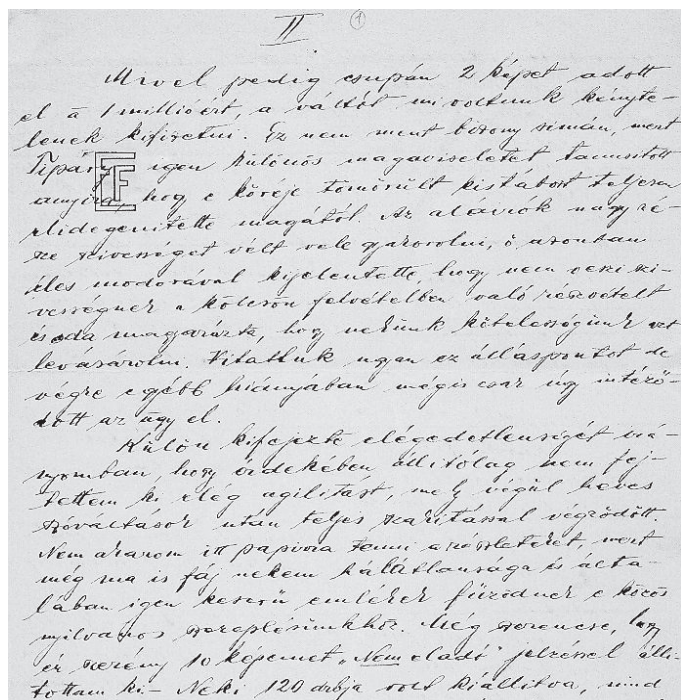 II ①
Mivel pedig csupán 2 képet adott
el a 1 millióért, a váltót mi voltunk kényte-
lenek kifizetni. Ez nem ment bizony simán, mert
Tipáry igen különös magaviseletet tanusitott
annyira, hogy a köréje tömörült kistábort teljesen
elidegenitette magától. Az aláirók nagy ré-
sze szivességet vélt vele gyakorolni, ő azonban
éles modorával kijelentette, hogy nem veszi szi-
vességnek a kölcsön felvételben való részvételt
és oda magyarázta, hogy nekünk kötelességünk azt
levásárolni. Vitattuk ugyan ez álláspontot de
végre egyébb hiányában mégis csak úgy intéző-
dött az ügy el.
Külön kifejezte elégedetlenségét irá-
nyomban, hogy érdekében állitólag nem fej-
tettem ki elég agilitást, mely végül heves
szóváltások után teljes szakitással végződött.
Nem akarom itt papirra tenni a részleteket, mert
még ma is fáj nekem hálátlansága és álta-
lában igen keserü emlékek füződnek e közös
nyilvános szereplésünkhöz. Még szerencse, hogy
én szerény 10 képemet „Nem eladó" jelzéssel álli-
tottam ki – Neki 120 drbja volt kiállitva, mind